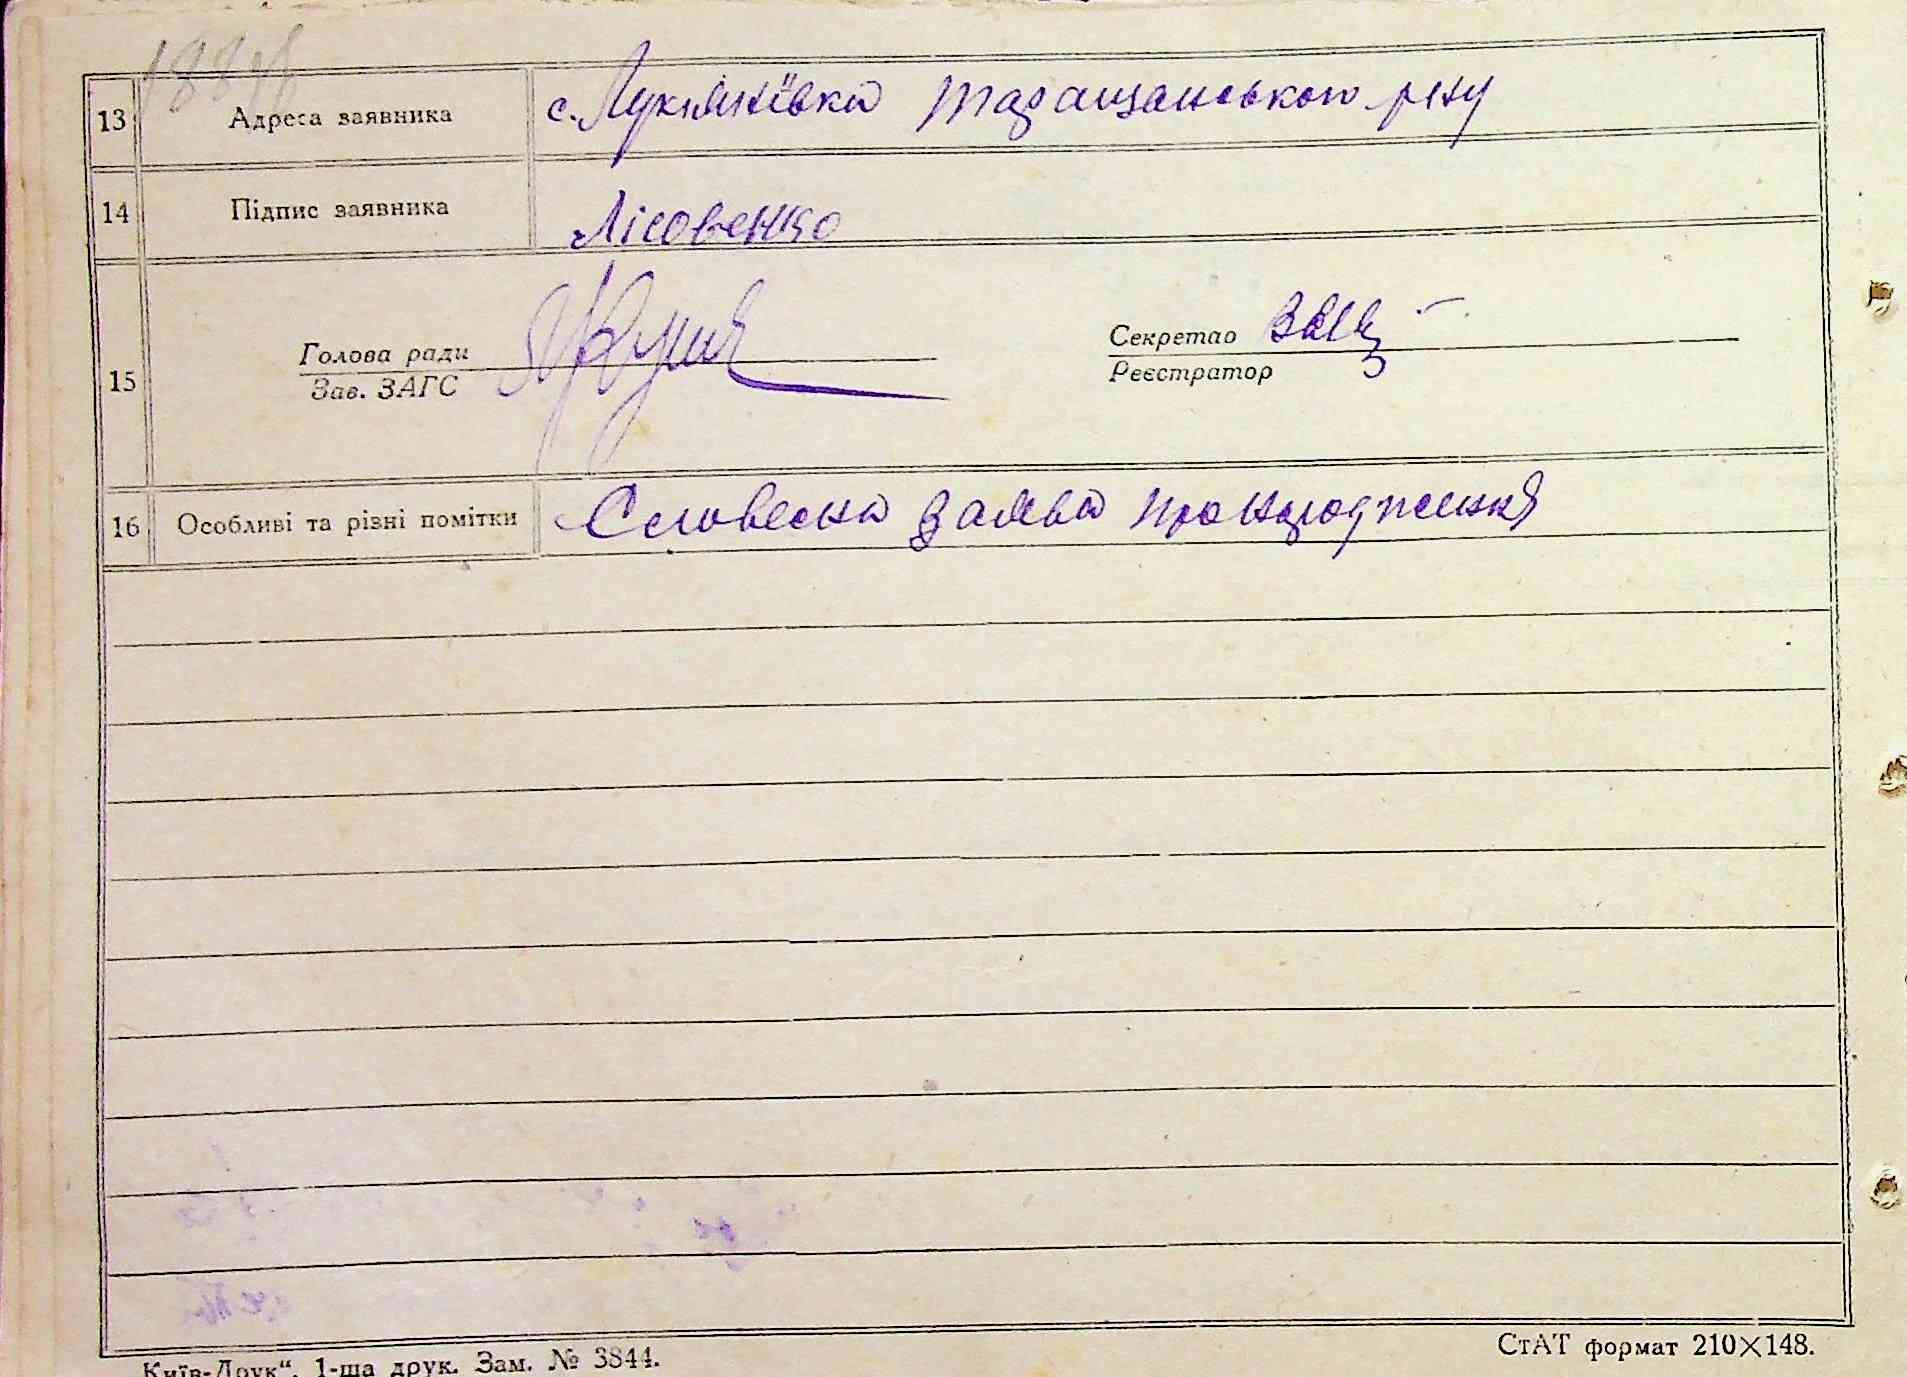 13 Адреса заявника с. Лукянівка Таращанського р-ну
14 Підпис заявника Лісовенко
15 Голова ради
Зав. ЗАГС
Секретар
Реєстратор
16 Особливі та різні помітки Словесна заява про народження
„Київ-Друк“, 1-ша друк. Зам. № 3844.
СтАТ формат 210×148.